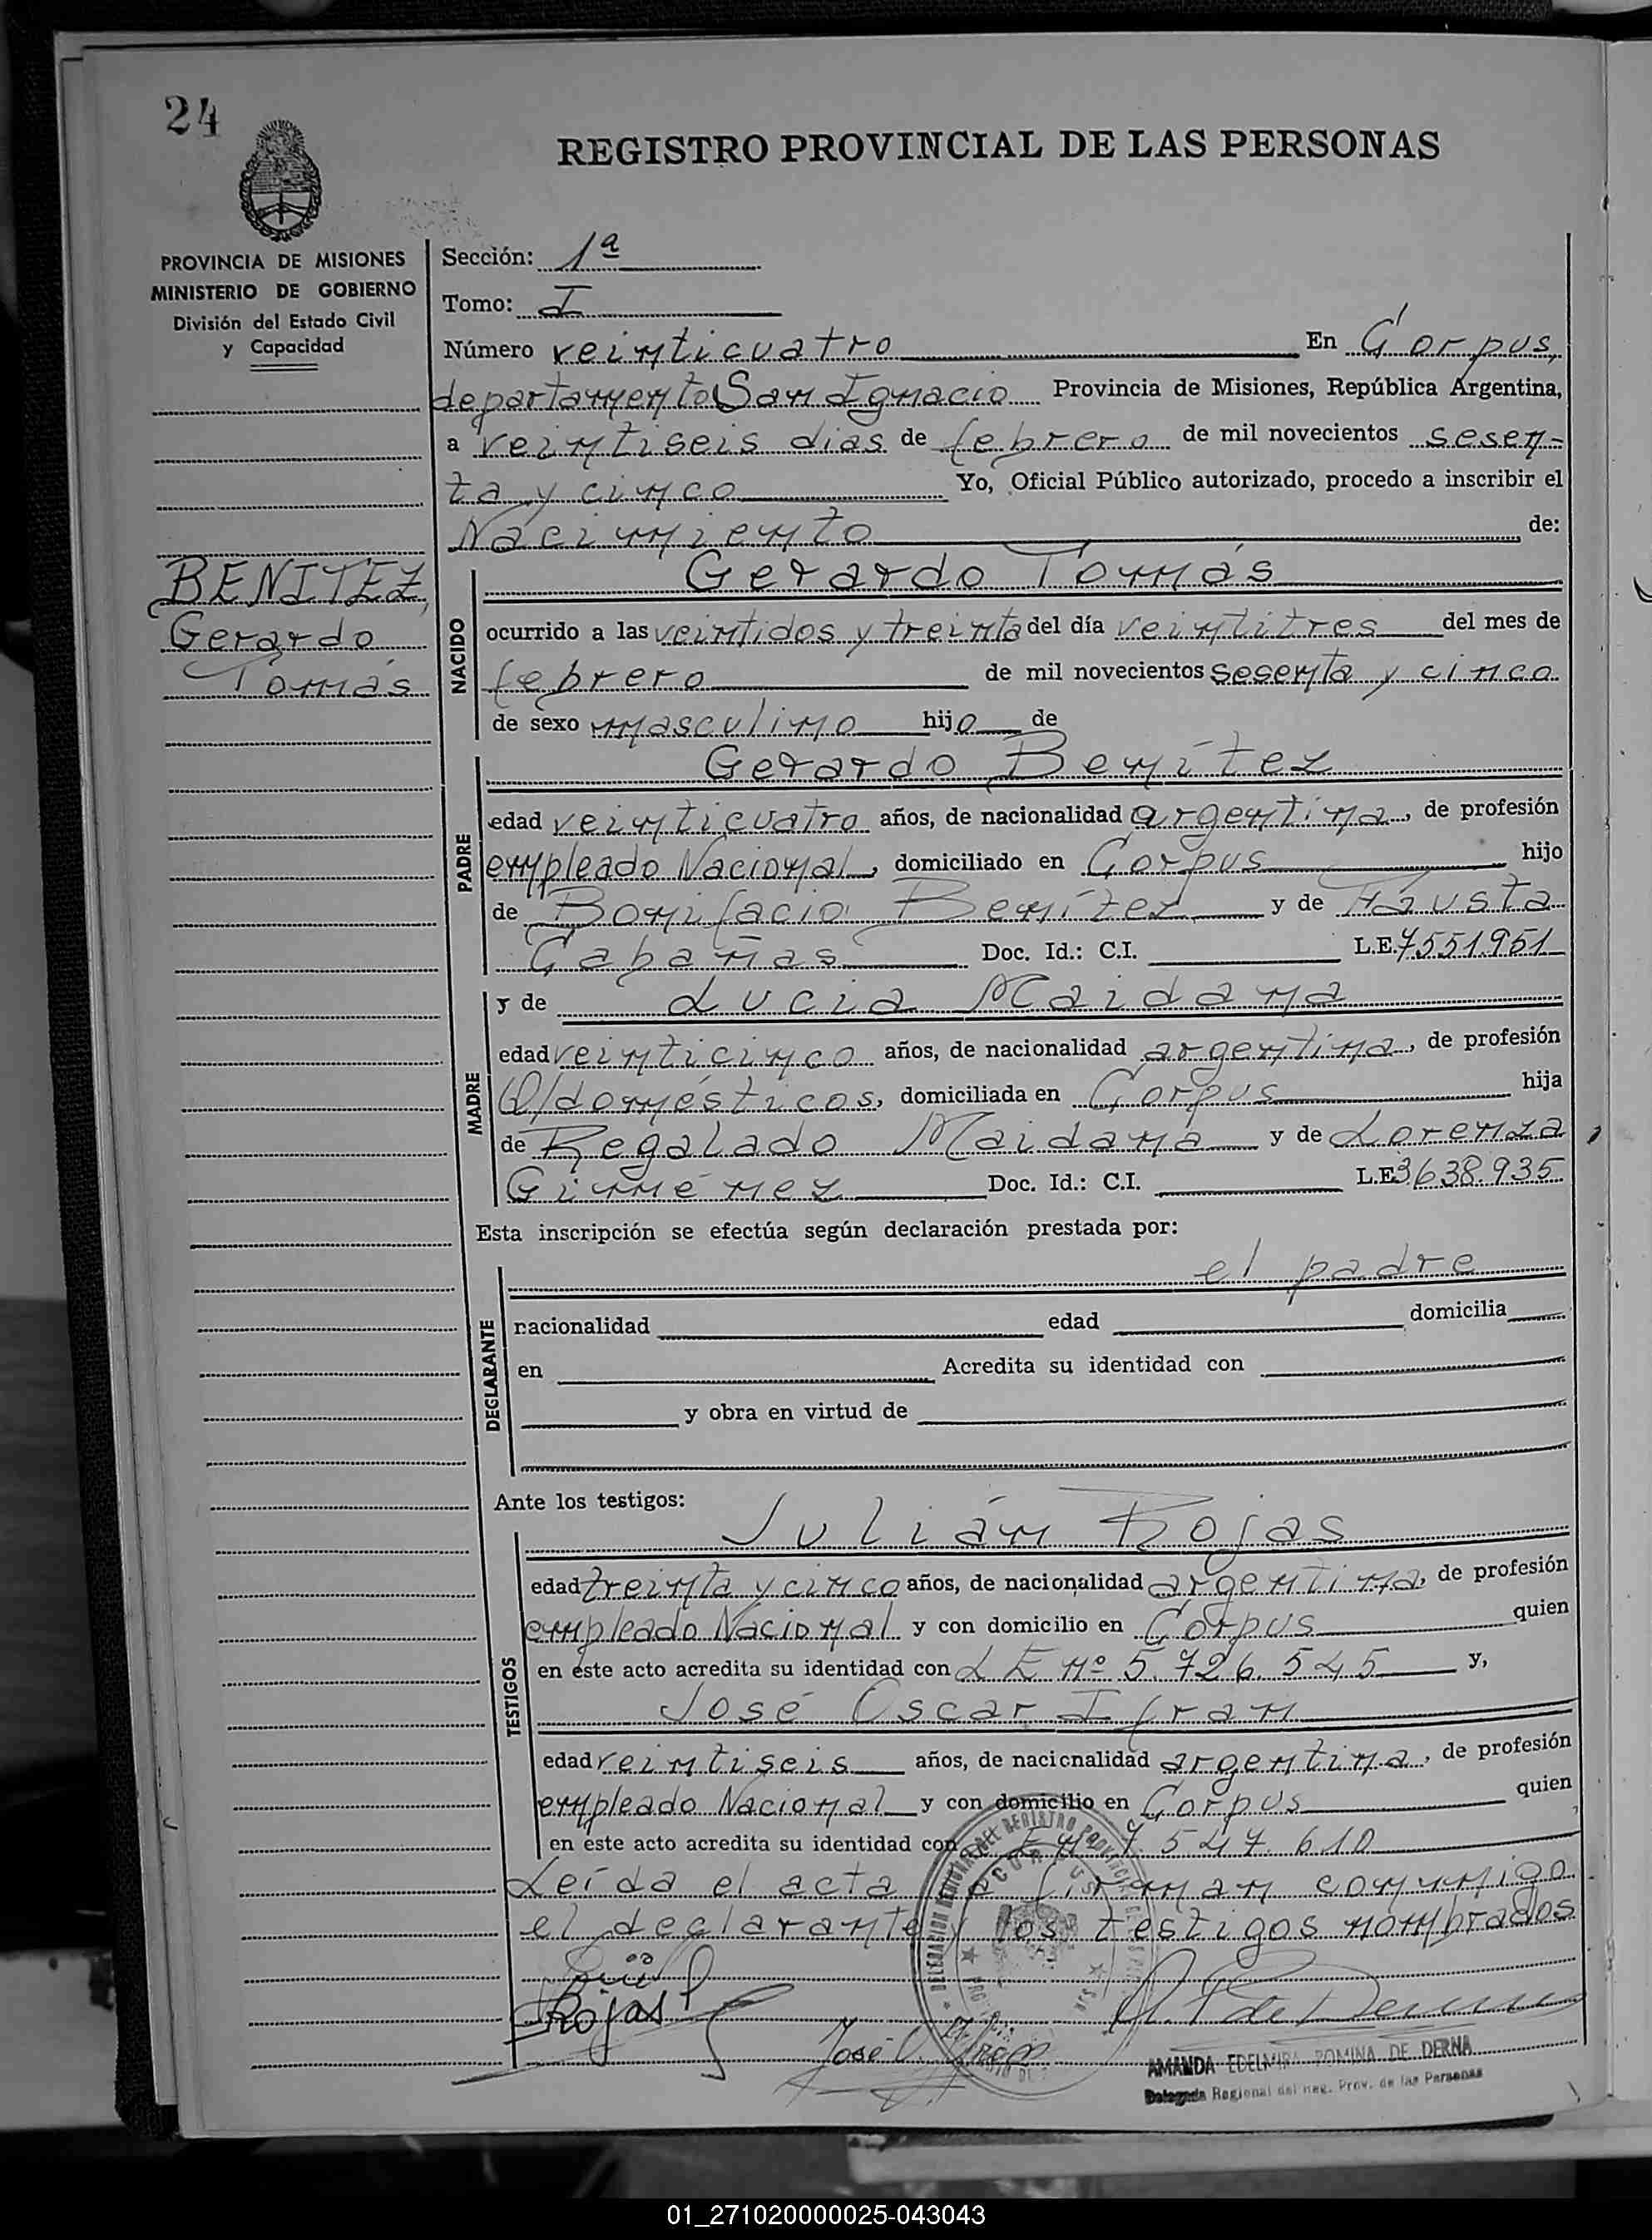 24
REGISTRO PROVINCIAL DE LAS PERSONAS
PROVINCIA DE MISIONES
MINISTERIO DE GOBIERNO
División del Estado Civil
y Capacidad
BENITEZ,
Gerardo
Tomás
Sección: 1ª
Tomo: I
Número veinticuatro En Corpus,
departamento San Ignacio Provincia de Misiones, República Argentina,
a veintiseis dias de febrero de mil novecientos sesen-
ta y cinco Yo, Oficial Público autorizado, procedo a inscribir el
Nacimiento de:
NACIDO
Gerardo Tomás
ocurrido a las veintidos y treinta del día veintitres del mes de
febrero de mil novecientos sesenta y cinco
de sexo masculino hijo de
PADRE
Gerardo Benítez
edad veinticuatro años, de nacionalidad argentina, de profesión
empleado Nacional, domiciliado en Corpus hijo
de Bonifacio Benítez y de Fausta
Cabañas Doc. Id.: C.I. L.E. 7551.951
MADRE
y de Lucia Maidana
edad veinticinco años, de nacionalidad argentina, de profesión
Q/domésticos, domiciliada en Corpus hija
de Regalado Maidana y de Lorenza
Giménez Doc. Id.: C.I. L.E. 3638.935
Esta inscripción se efectúa según declaración prestada por:
DECLARANTE
el padre
nacionalidad edad domicilia
en Acredita su identidad con
y obra en virtud de
Ante los testigos:
TESTIGOS
Julián Rojas
edad treinta y cinco años, de nacionalidad argentina, de profesión
empleado Nacional y con domicilio en Corpus quien
en este acto acredita su identidad con L E Nº 5.726.545 y,
José Oscar Ifran
edad veintiseis años, de nacionalidad argentina, de profesión
empleado Nacional y con domicilio en Corpus quien
en este acto acredita su identidad con 7.547.610
Leída el acta firman conmigo
el declarante y los testigos nombrados
Rojas
José O. Ifran
AMANDA EDELMIRA ROMINA DE DERNA
Delegada Regional del Reg. Prov. de las Personas
01_271020000025-043043